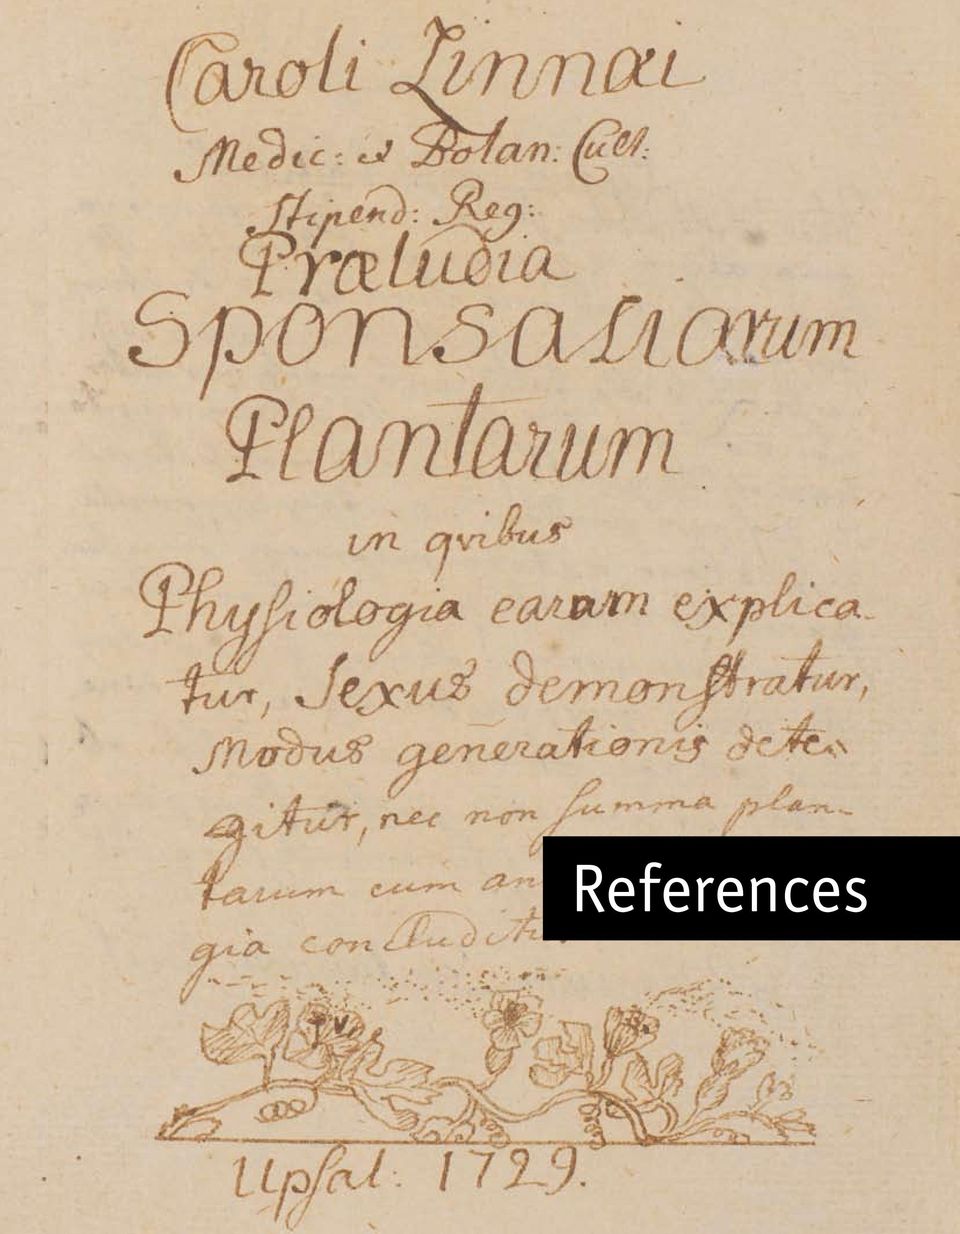 Caroli Linnæi
Medic: et Botan: Cult:
Stipend: Reg:
Præludia
Sponsaliarum
Plantarum
in qvibus
Physiologia earum explica-
tur, Sexus demonstratur,
Modus generationis dete-
gitur, nec non summa plan-
tarum cum an
gia concluditu
References
Upsal: 1729.